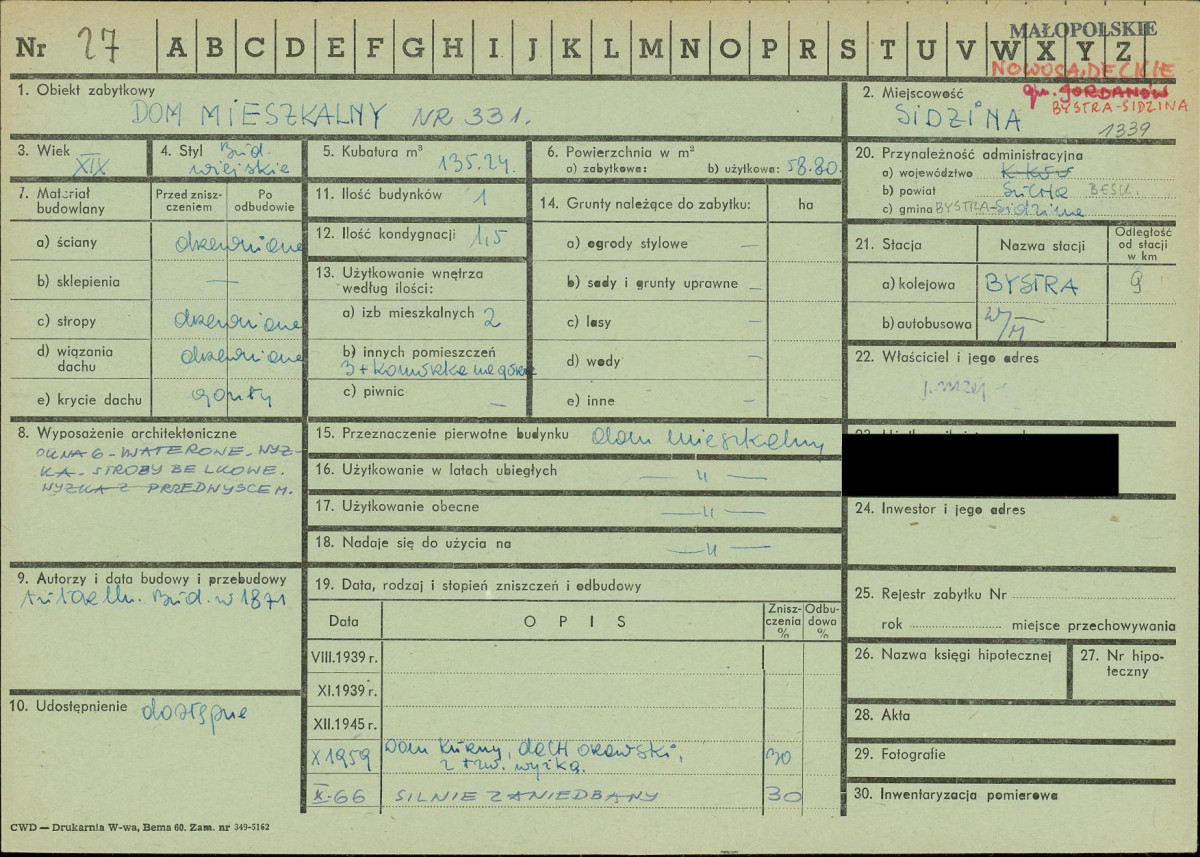 Nr 27 A B C D E F G H I J K L M N O P R S T U V W X Y Z
MAŁOPOLSKIE
NOWOSĄDECKIE
gm. JORDANÓW
BYSTRA-SIDZINA
1339
1. Obiekt zabytkowy
DOM MIESZKALNY NR 331.
2. Miejscowość
SIDZINA
3. Wiek
XIX
4. Styl Bud.
wiejskie
5. Kubatura m³
135.24.
6. Powierzchnia w m²
a) zabytkowa: b) użytkowa: 58.80.
7. Materiał budowlany
Przed zniszczeniem
Po odbudowie
a) ściany drewniane
b) sklepienia —
c) stropy drewniane
d) wiązania dachu drewniane
e) krycie dachu gonty
8. Wyposażenie architektoniczne
OKNA 6-KWATEROWE. WYŻ-
KA. STROBY BELKOWE.
WYŻKA Z PRZEDWYSCEM.
9. Autorzy i data budowy i przebudowy
Bud. w 1871
10. Udostępnienie dostępne
11. Ilość budynków 1
12. Ilość kondygnacji 1,5
13. Użytkowanie wnętrza według ilości:
a) izb mieszkalnych 2
b) innych pomieszczeń
3 + komórka na górze
c) piwnic —
14. Grunty należące do zabytku: ha
a) ogrody stylowe —
b) sady i grunty uprawne —
c) lasy —
d) wody —
e) inne —
15. Przeznaczenie pierwotne budynku dom mieszkalny
16. Użytkowanie w latach ubiegłych — „ —
17. Użytkowanie obecne — „ —
18. Nadaje się do użycia na — „ —
19. Data, rodzaj i stopień zniszczeń i odbudowy
Data
O P I S
Zniszczenia %
Odbudowa %
VIII.1939 r.
XI.1939 r.
XII.1945 r.
X 1959 Dom kurny, dach orawski, 30
z tzw. wyżką.
X-66 SILNIE ZANIEDBANY 30
20. Przynależność administracyjna
a) województwo
b) powiat Sucha BESK.
c) gmina BYSTRA-Sidzina
21. Stacja
Nazwa stacji
Odległość od stacji w km
a) kolejowa BYSTRA 9
b) autobusowa w/m
22. Właściciel i jego adres
j. niżej
24. Inwestor i jego adres
25. Rejestr zabytku Nr
rok miejsce przechowywania
26. Nazwa księgi hipotecznej
27. Nr hipoteczny
28. Akta
29. Fotografie
30. Inwentaryzacja pomiarowa
CWD — Drukarnia W-wa, Bema 60. Zam. nr 349-5162